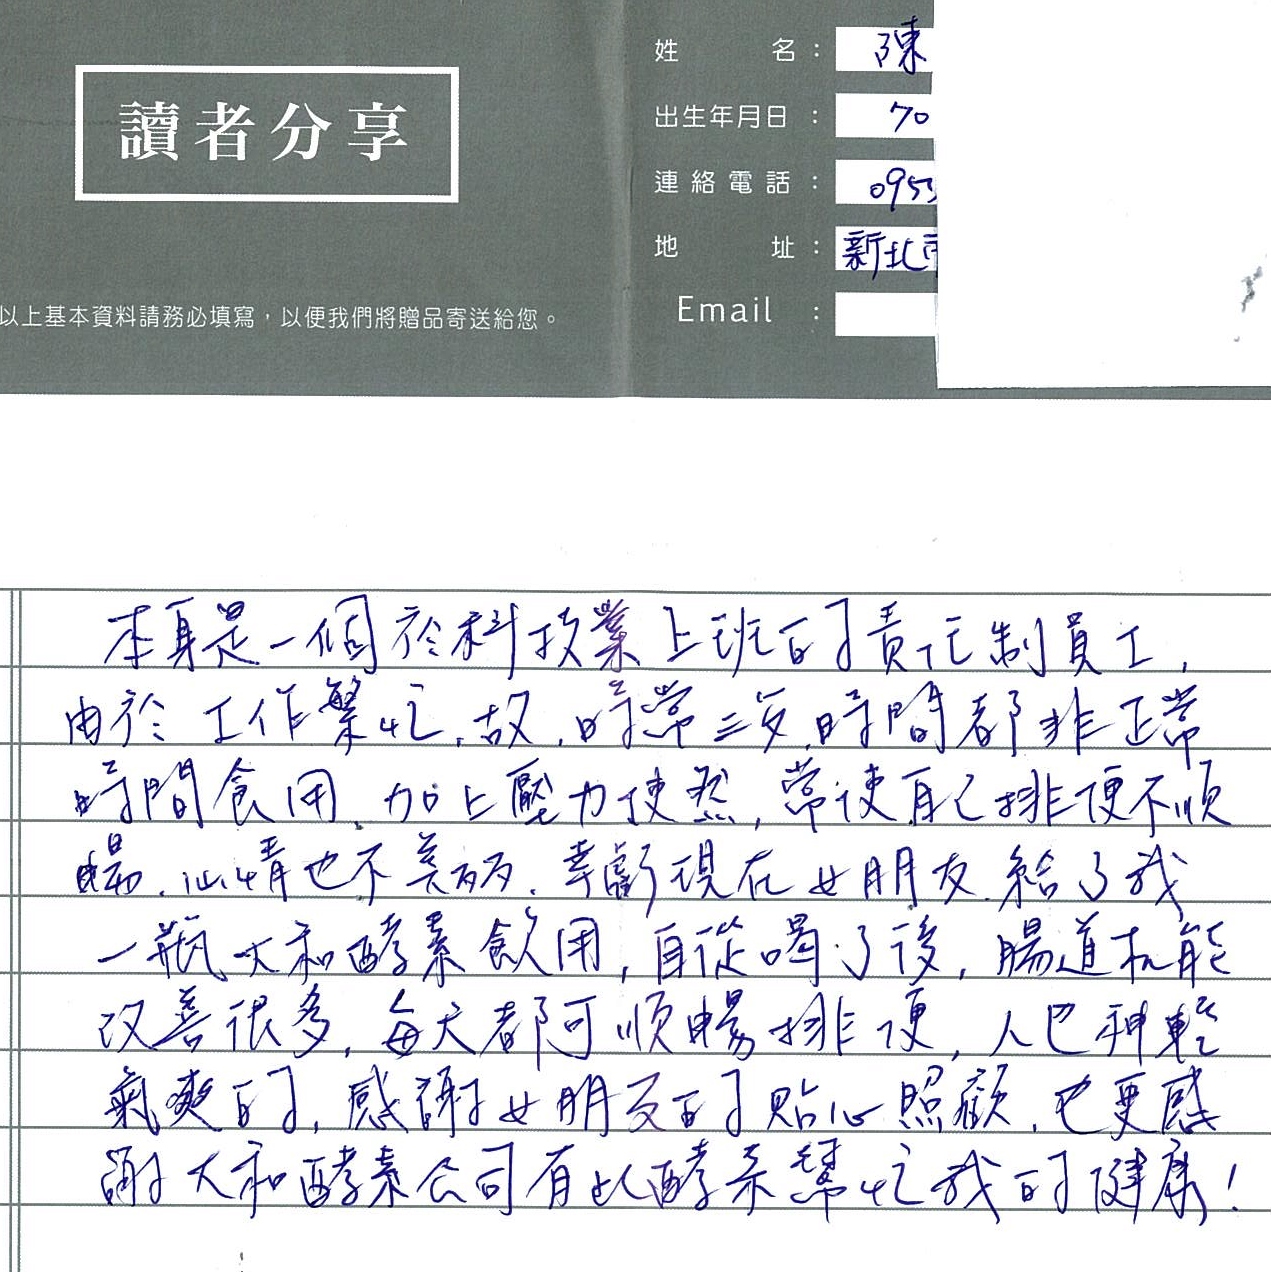 讀者分享
姓名：陳
出生年月日：70
連絡電話：0953
地址：新北市
Email：
以上基本資料請務必填寫，以便我們將贈品寄送給您。
本身是一個於科技業上班的責任制員工,
由於工作繁忙,故,時常三歺,時間都非正常
時間食用,加上壓力使然,常使自己排便不順
暢,心情也不美麗,幸虧現在女朋友給了我
一瓶大和酵素飲用,自從喝了後,腸道机能
改善很多,每天都可順暢排便,人也神輕
氣爽的,感謝女朋友的貼心照顧,也更感
謝大和酵素公司有此酵素幫忙我的健康!